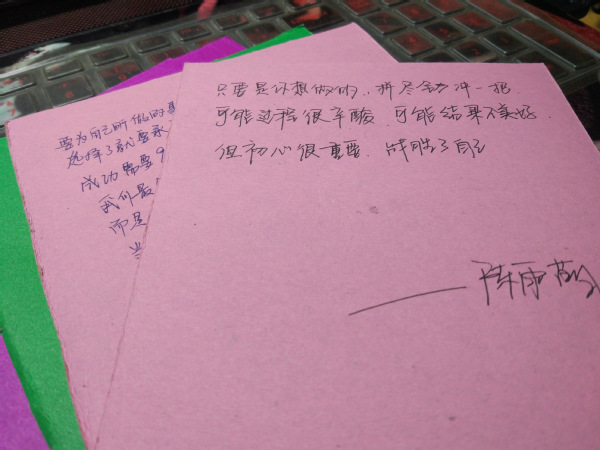 只要是你想做的，拼尽全力冲一把
可能过程很辛酸，可能结果不美好，
但初心很重要，战胜了自己
——陈雨
要为自己所做的事
选择了就要承
成功需要
我们最
而是
当